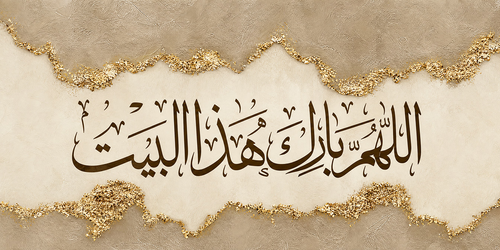 اللَّهُمَّ بَارِكَ هَذَا البَيْت